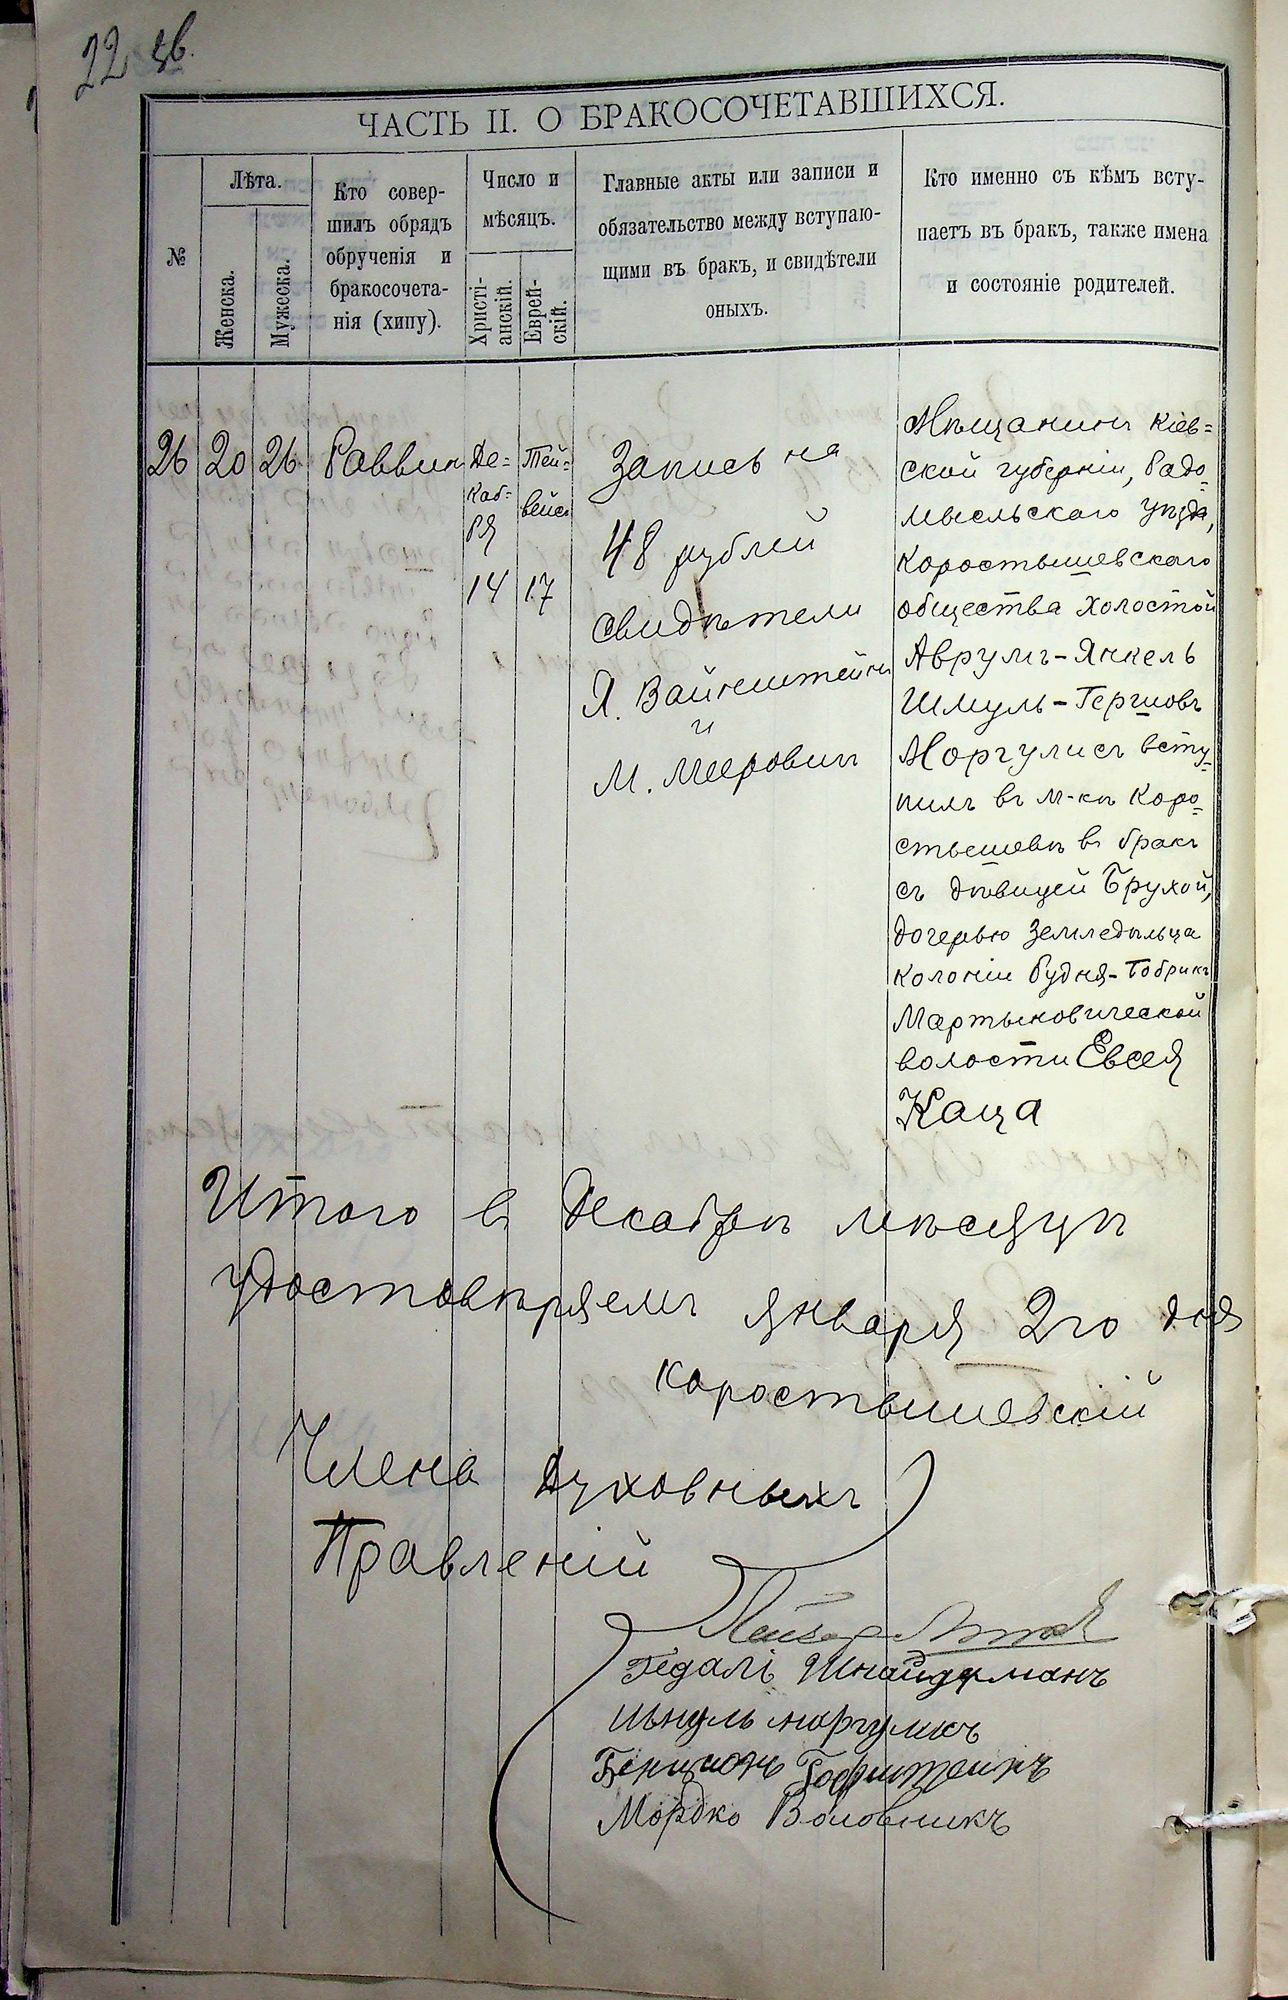 22 зв.
ЧАСТЬ II. О БРАКОСОЧЕТАВШИХСЯ.
№
Лѣта.
Женска.
Мужеска.
Кто совер-
шилъ обрядъ
обрученія и
бракосочета-
нія (хипу).
Число и
мѣсяцъ.
Христі-
анскій.
Еврей-
скій.
Главные акты или записи и
обязательство между вступаю-
щими въ бракъ, и свидѣтели
оныхъ.
Кто именно съ кѣмъ всту-
паетъ въ бракъ, также имена
и состояніе родителей.
26
20
26
Раввин
Де=
каб=
ря
14
Тей=
вейс
17
Запись на
48 рублей
свидѣтели
Я. Вайнштейн
и
М. Меерович
Мѣщанинъ Кіев=
ской губерніи, Радо=
мысльскаго уѣзда,
Коростышевскаго
общества холостой
Аврумъ-Янкель
Шмуль-Гершовъ
Моргулисъ всту=
пилъ въ м-кѣ Коро=
стышевѣ въ бракъ
съ дѣвицей Брухой,
дочерью Земледѣльца
колоніи Рудня-Тобрикъ
Мартыновической
волости Евсея
Каца
Итого в Декабрѣ мѣсяцѣ
удостовѣряемъ января 2го дня
Коростышевскій
Члена Духовныхъ
Правленій
Гедалі Шнайдерманъ
Шмуль Моргулисъ
Бенционъ Гофштеинъ
Мордко Воловникъ